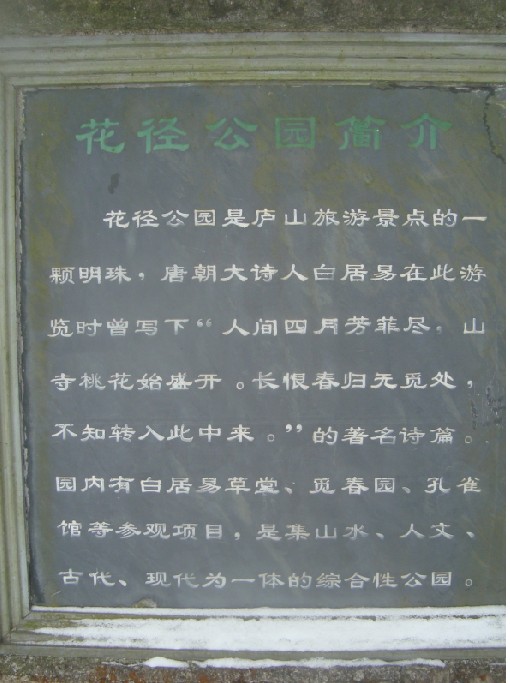 花径公园简介
花径公园是庐山旅游景点的一
颗明珠，唐朝大诗人白居易在此游
览时曾写下“人间四月芳菲尽，山
寺桃花始盛开。长恨春归无觅处，
不知转入此中来。”的著名诗篇。
园内有白居易草堂、觅春园、孔雀
馆等参观项目，是集山水、人文、
古代、现代为一体的综合性公园。